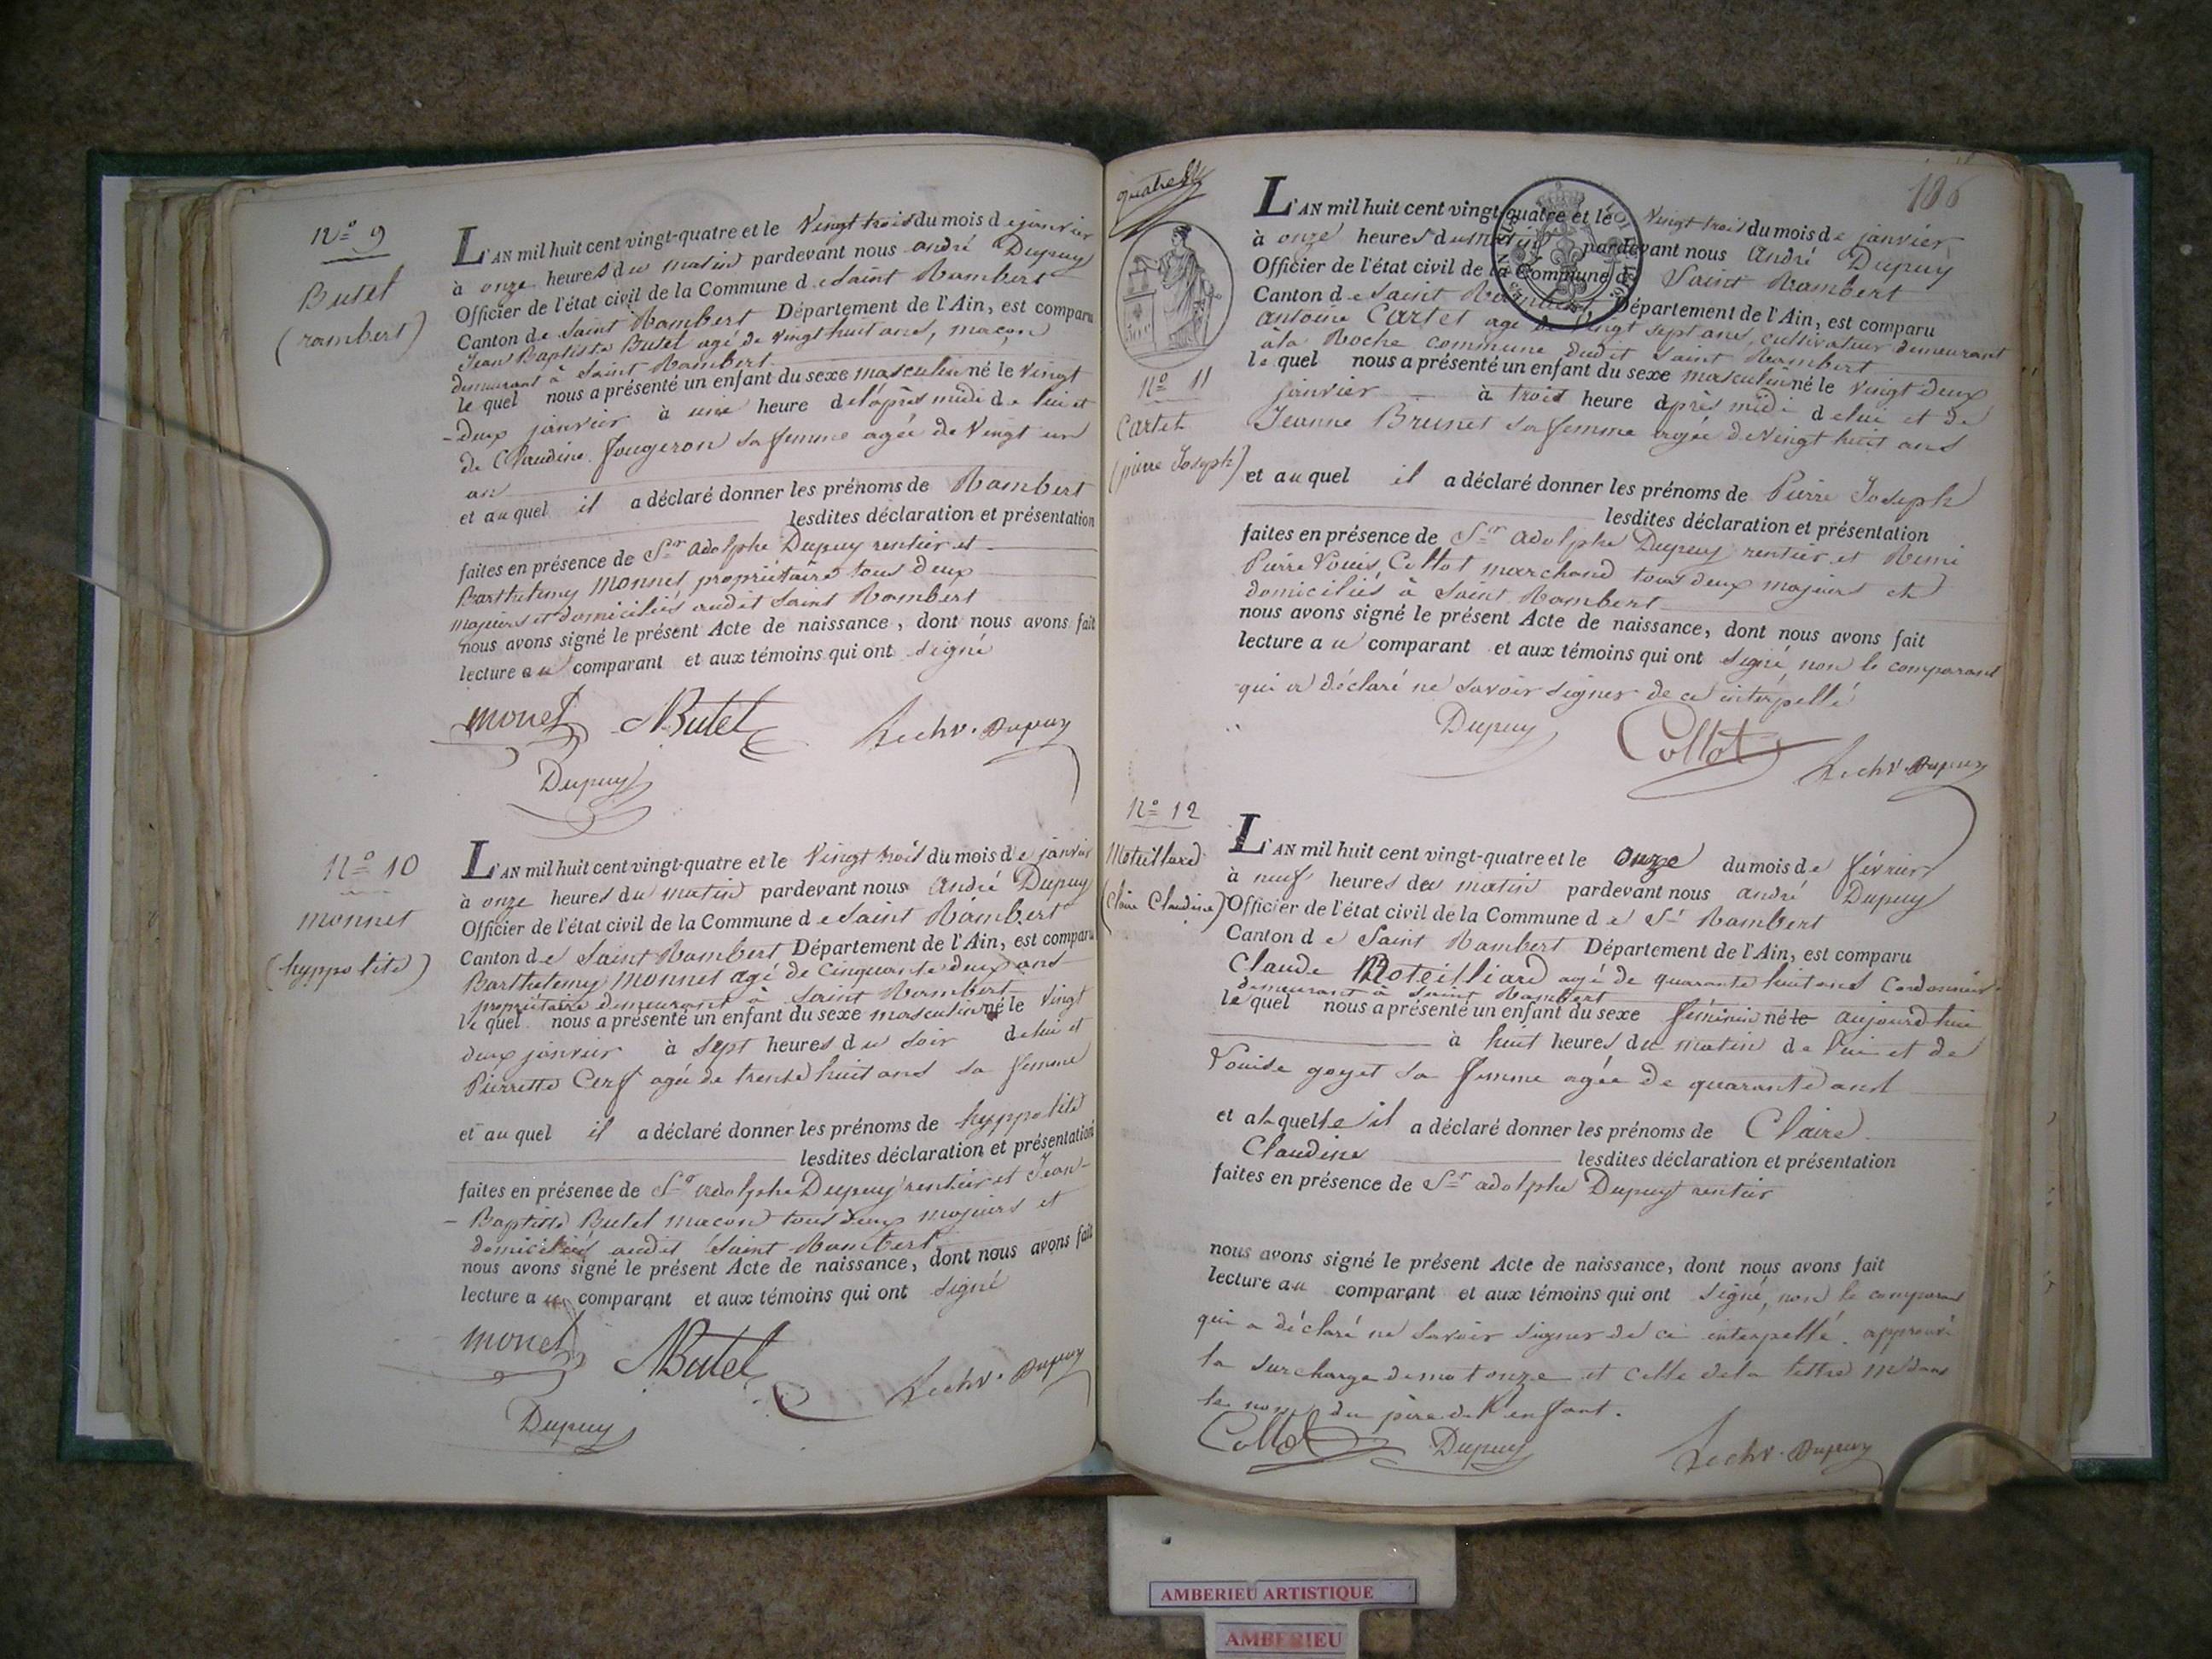 N° 9
Butet
(rambert)
L'AN mil huit cent vingt-quatre et le Vingt trois du mois de janvier
à onze heures du matin pardevant nous andré Dupuy
Officier de l'état civil de la Commune de Saint Rambert
Canton de Saint Rambert Département de l'Ain, est comparu
Jean Baptiste Butet agé de vingt huit ans, maçon
demeurant à Saint Rambert
le quel nous a présenté un enfant du sexe masculin né le Vingt
-deux janvier à une heure de l'après midi de lui et
de Claudine Fougeron sa femme agée de Vingt un
an
et au quel il a déclaré donner les prénoms de Rambert
lesdites déclaration et présentation
faites en présence de Sr adolphe Dupuy rentier et
Barthelemy Monnet propriétaire tous deux
majeurs et domiciliés audit Saint Rambert
nous avons signé le présent Acte de naissance, dont nous avons fait
lecture au comparant et aux témoins qui ont signé
monet Butet Dupuy
Dupuy
N° 10
monnet
(hyppolite)
L'AN mil huit cent vingt-quatre et le Vingt trois du mois de janvier
à onze heures du matin pardevant nous André Dupuy
Officier de l'état civil de la Commune de Saint Rambert
Canton de Saint Rambert Département de l'Ain, est comparu
Barthelemy Monnet agé de Cinquante deux ans
propriétaire demeurant à Saint Rambert
le quel nous a présenté un enfant du sexe masculin né le Vingt
deux janvier à sept heures du soir de lui et
Pierrette Cerf agée de trente huit ans sa femme
et au quel il a déclaré donner les prénoms de hyppolite
lesdites déclaration et présentation
faites en présence de Sr adolphe Dupuy rentier et Jean-
- Baptiste Butet macon tous deux majeurs et
domiciliés audit Saint Rambert
nous avons signé le présent Acte de naissance, dont nous avons fait
lecture au comparant et aux témoins qui ont signé
monet Butet Dupuy
Dupuy
186
L'AN mil huit cent vingt-quatre et le Vingt trois du mois de janvier
à onze heures du matin pardevant nous André Dupuy
Officier de l'état civil de la Commune de Saint Rambert
Canton de Saint Rambert Département de l'Ain, est comparu
antoine Cartet agé de Vingt sept ans, cultivateur demeurant
à la Roche commune dudit Saint Rambert
N° 11
Cartet
(pierre Joseph)
le quel nous a présenté un enfant du sexe masculin né le Vingt deux
janvier à trois heure après midi de lui et de
Jeanne Brunet sa femme agée de Vingt huit ans
et au quel il a déclaré donner les prénoms de Pierre Joseph
lesdites déclaration et présentation
faites en présence de Sr adolphe Dupuy rentier et Remi
Pierre Louis Collot marchand tous deux majeurs et
domiciliés à Saint Rambert
nous avons signé le présent Acte de naissance, dont nous avons fait
lecture au comparant et aux témoins qui ont signé, non le comparant
qui a déclaré ne savoir signer de ce interpellé
Dupuy Collot Dupuy
N° 12
Moteilliard
(Claire Claudine)
L'AN mil huit cent vingt-quatre et le onze du mois de février
à neuf heures du matin pardevant nous andré Dupuy
Officier de l'état civil de la Commune de St Rambert
Canton de Saint Rambert Département de l'Ain, est comparu
Claude Moteilliard agé de quarante huit ans Cordonnier
demeurant à Saint Rambert
le quel nous a présenté un enfant du sexe féminin né le aujourd'hui
à huit heures du matin de lui et de
Louise goyet sa femme agée de quarante ans
et à laquelle il a déclaré donner les prénoms de Claire
Claudine lesdites déclaration et présentation
faites en présence de Sr adolphe Dupuy rentier
nous avons signé le présent Acte de naissance, dont nous avons fait
lecture au comparant et aux témoins qui ont signé, non le comparant
qui a déclaré ne savoir signer de ce interpellé. approuvé
la surcharge du mot onze et celle de la lettre M dans
le nom du père de l'enfant.
Collot Dupuy Dupuy
AMBERIEU ARTISTIQUE
AMBERIEU